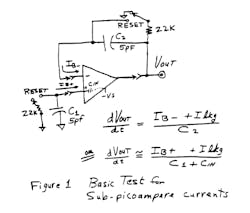 RESET
22K
C2
5pF
IB-
VOUT
RESET
IB+
CIN
-VS
22K
C1
5pF
dVOUT / dt = IB- + Ilkg / C2
OR dVOUT / dt ≅ IB+ + Ilkg / C1 + CIN
Figure 1 Basic Test for
Sub-picoampere currents